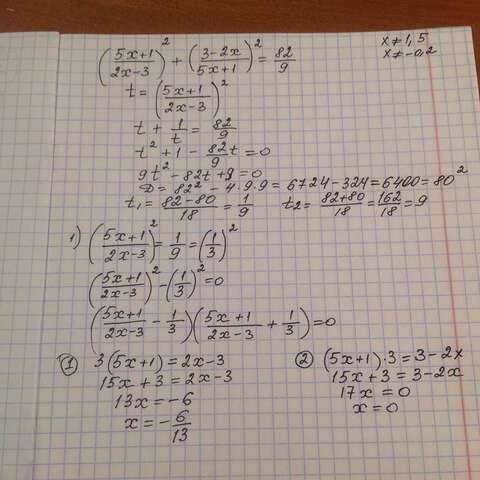 (5x+1 / 2x-3)² + (3-2x / 5x+1)² = 82/9
x≠1,5
x≠-0,2
t = (5x+1 / 2x-3)²
t + 1/t = 82/9
t² + 1 - 82/9 t = 0
9t² - 82t + 9 = 0
D = 82² - 4·9·9 = 6724 - 324 = 6400 = 80²
t₁ = 82-80 / 18 = 1/9 t₂ = 82+80 / 18 = 162/18 = 9
1) (5x+1 / 2x-3)² = 1/9 = (1/3)²
(5x+1 / 2x-3)² - (1/3)² = 0
(5x+1 / 2x-3 - 1/3)(5x+1 / 2x-3 + 1/3) = 0
① 3(5x+1) = 2x-3
15x+3 = 2x-3
13x = -6
x = -6/13
② (5x+1)·3 = 3-2x
15x+3 = 3-2x
17x = 0
x = 0